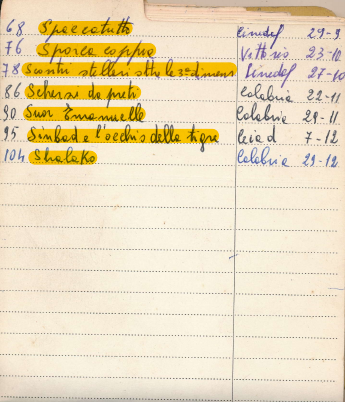 68 Spaccatutto Cinedel 29-9
76 Sporca coppia Vittorio 23-10
78 Scontri stellari oltre la 3a dimens Cinedel 27-10
86 Scherzi da preti Calabria 22-11
90 Suor Emanuelle Calabria 29-11
95 Simbad e l'occhio della tigre Ceiad 7-12
104 Shalako Calabria 29-12